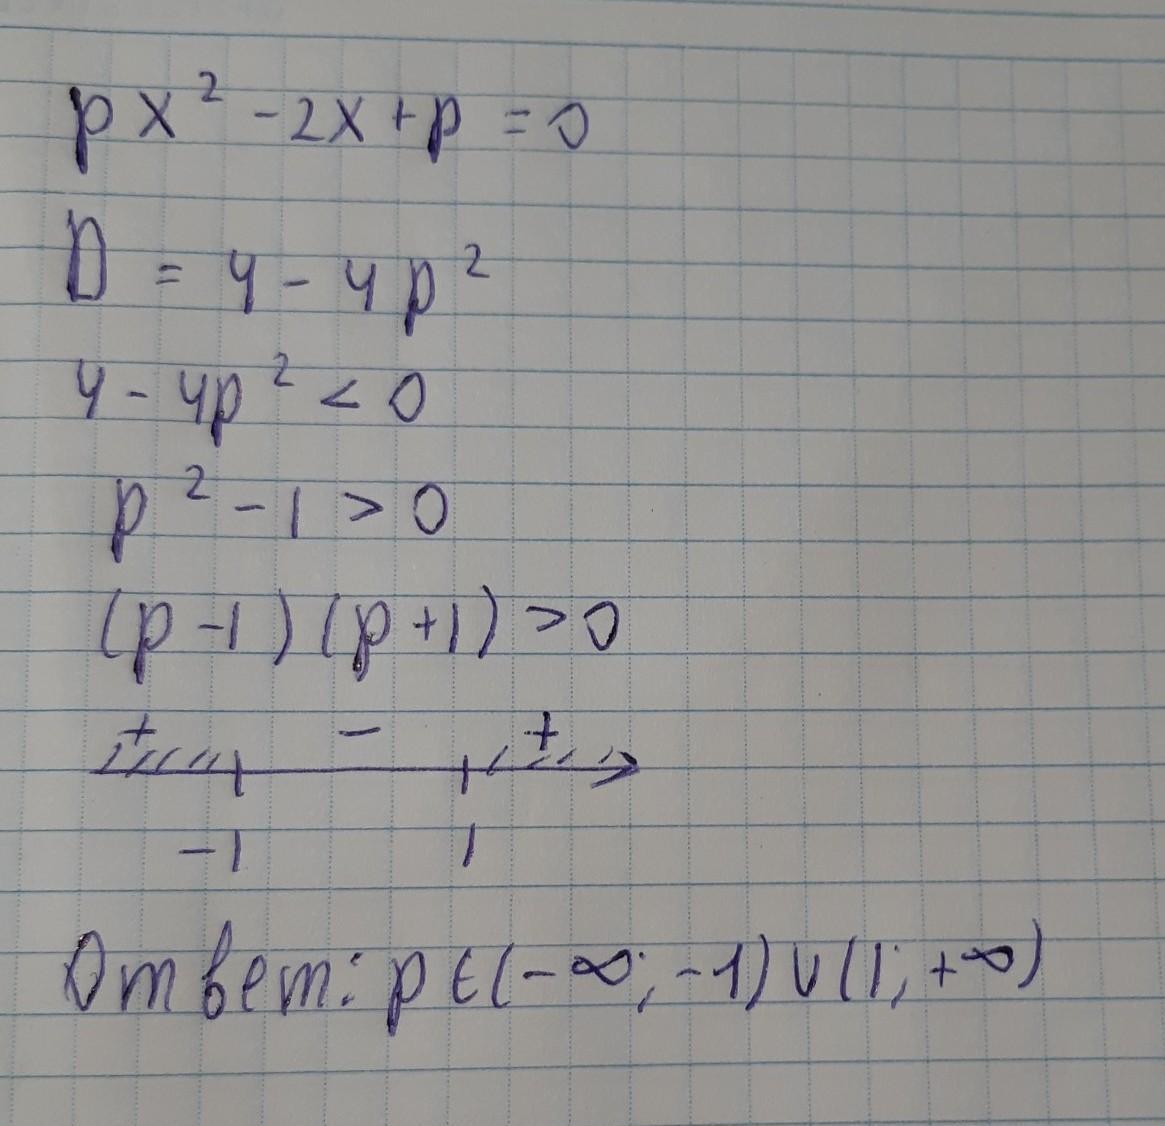 px² - 2x + p = 0
D = 4 - 4p²
4 - 4p² < 0
p² - 1 > 0
(p - 1)(p + 1) > 0
+ - +
-1 1
Ответ: p ∈ (-∞; -1) ∪ (1; +∞)